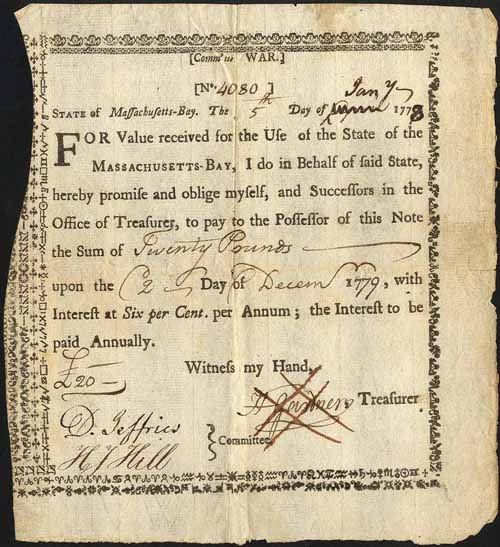 [Comm'tee WAR.]
[No. 4080]
STATE of Massachusetts-Bay. The 5th Day of Jany 1778
FOR Value received for the Use of the State of the
MASSACHUSETTS-BAY, I do in Behalf of said State,
hereby promise and oblige myself, and Successors in the
Office of Treasurer, to pay to the Possessor of this Note
the Sum of Twenty Pounds
upon the 2 Day of Decem 1779, with
Interest at Six per Cent. per Annum; the Interest to be
paid Annually.
Witness my Hand,
£20
H Gardner Treasurer
D. Jeffries
} Committee
Hy Hill